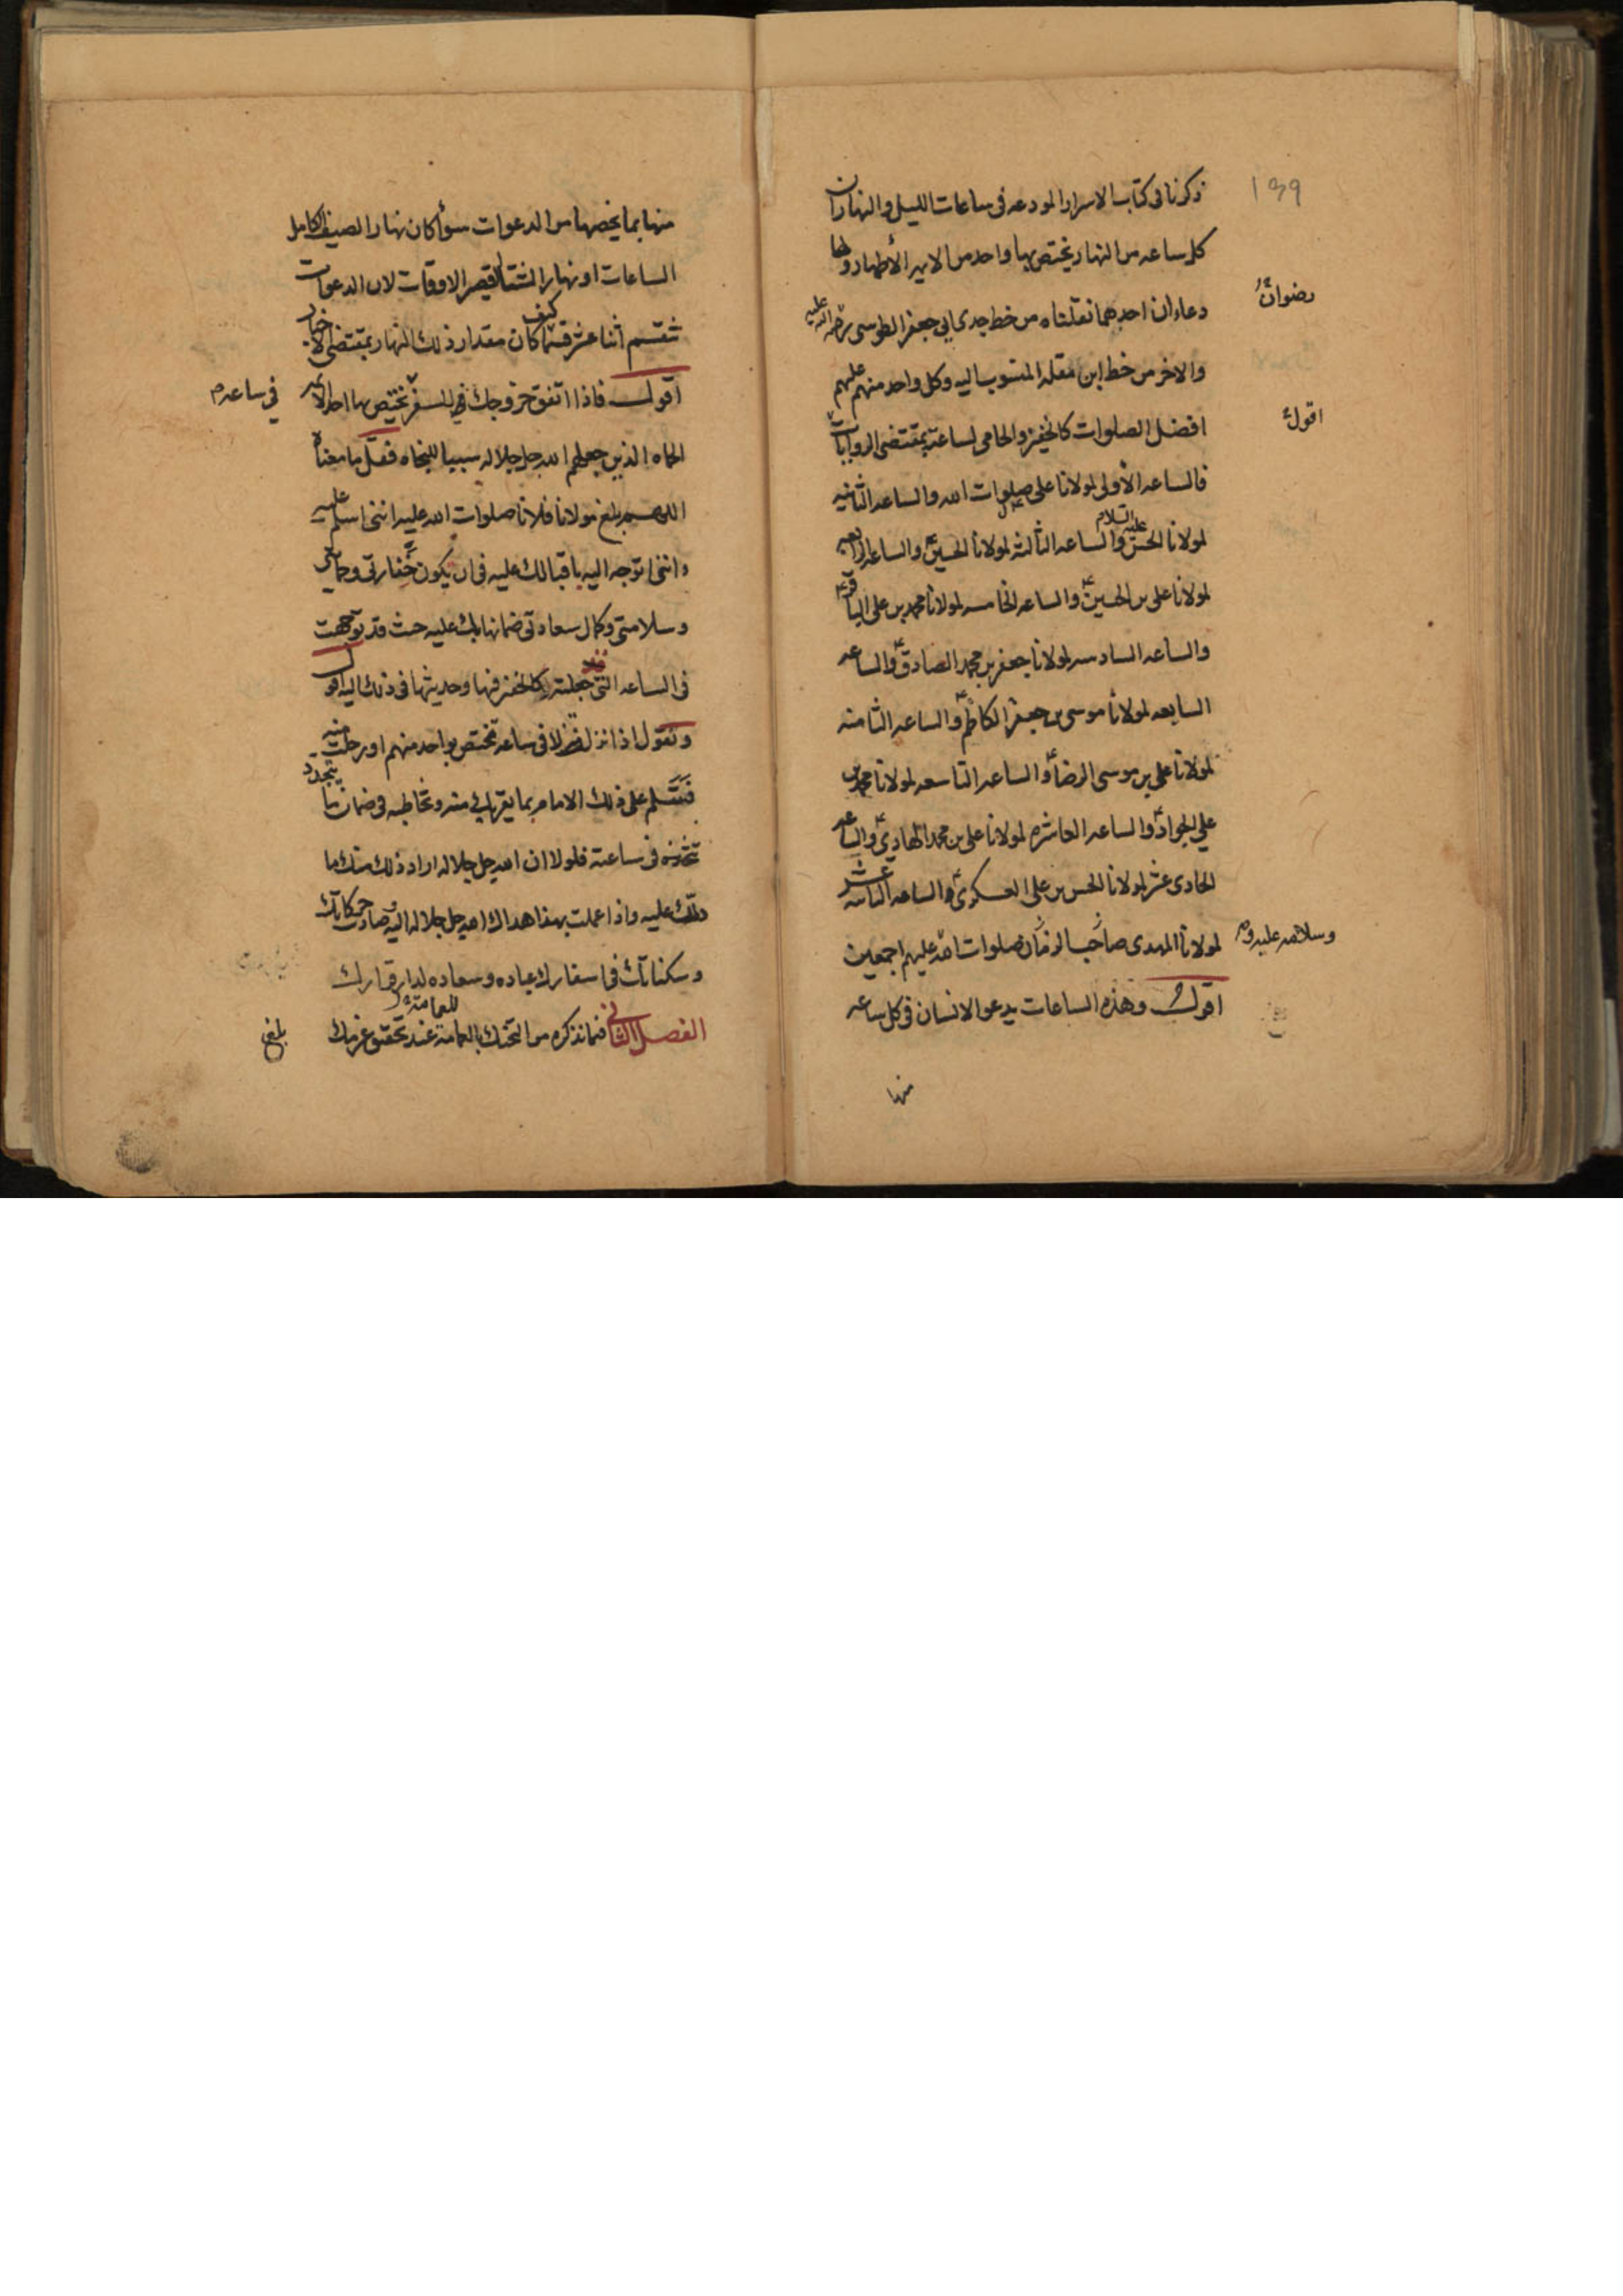 ١٣٩
ذكرنا فى كتاب الاسرار المودعه فى ساعات الليل والنهار ان
كل ساعه من النهار يختص بها واحد من الايمه الأطهار ولها
دعاءان احدهما نقلناه من خط جدى ابي جعفر الطوسى رضوان الله عليه
والاخر من خط ابن مقله المنسوب اليه وكل واحد منهم عليهم
افضل الصلوات كالخفير والحامى لساعته بمقتضى الروايات
اقول
فالساعه الأولى لمولانا على صلوات الله والساعه الثانيه
لمولانا الحسن عليه السلام والساعه الثالثه لمولانا الحسين ع والساعه الرابعه
لمولانا على بن الحسين ع والساعه الخامسه لمولانا محمد بن على الباقر ع
والساعه السادسه لمولانا جعفر بن محمد الصادق ع والساعه
السابعه لمولانا موسى بن جعفر الكاظم ع والساعه الثامنه
لمولانا على بن موسى الرضا ع والساعه التاسعه لمولانا محمد بن
علي الجواد ع والساعه العاشره لمولانا على بن محمد الهادي ع والساعه
الحادى عشر لمولانا الحسن بن على العسكرى ع والساعه الثانيه عشر
لمولانا المهدى صاحب الزمان صلوات الله عليهم اجمعين
وسلامه عليه
اقول وهذه الساعات يدعو الانسان فى كل ساعه
منها
منها بما يخصها من الدعوات سوأ كان نهار الصيف الكامل
الساعات او نهار الشتا القصير الاوقات لان الدعوات
تنقسم اثنا عشر قسما كيف كان مقدار ذلك النهار بمقتضى الاخبار
اقول فاذا اتفق خروجك للسفر فى ساعه يختص بها احد الائمه
الحماه الذين جعلهم الله جل جلاله سببا للنجاه فقل ما معناه
اللهم بلغ مولانا فلانا صلوات الله عليه اننى اسلم عليه
وانني اتوجه اليه باقبالك عليه فى ان يكون خفارتى وحمايتى
وسلامتى وكمال سعادتى ضمانها بك عليه حيث قد توجهت
فى الساعه التى جعلته كالخفير فيها وحديثها فى ذلك اليه اقول
وتقول اذا نزلت منزلا فى ساعه تختص بواحد منهم او رحلت منه
فتسلم على ذلك الامام بما يقربك منه وتخاطبه فى ضمان ما يتجدد
فى ساعته فلولا ان الله جل جلاله اراد ذلك منك ما
دلك عليه واذا عملت بهذا هداك الله جل جلاله اليه وصارت حركاتك
وسكناتك فى اسفارك عباده وسعاده لدار قرارك
الفصل الثاني فيما نذكره من التحنك بالعمامه عند تحقق عزمك
للعامة
بلغ